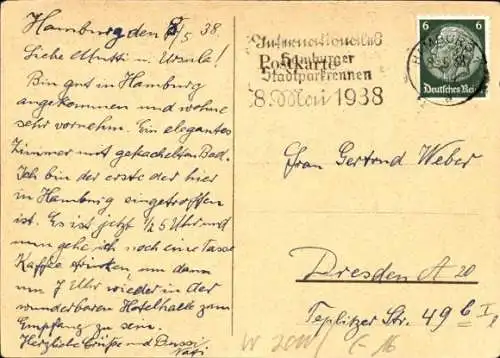 Hamburg den 8/5 38.
Liebe Mutti u. Ursula!
Bin gut in Hamburg
angekommen und wohne
sehr vornehm. Ein elegantes
Zimmer mit gekacheltem Bad.
Ich bin der erste der hier
in Hamburg eingetroffen
ist. Es ist jetzt 1/2 5 Uhr und
nun gehe ich noch eine Tasse
Kaffee trinken, um dann
um 7 Uhr wieder in der
wunderbaren Hotelhalle zum
Empfang zu sein.
Herzliche Grüße und
Internationales
Hamburger
Postkarte
Stadtparkrennen
8. Mai 1938
6 6
HAMBURG
Deutsches Reich
Frau Gertrud Weber
Dresden A 20
Teplitzer Str. 49 b I